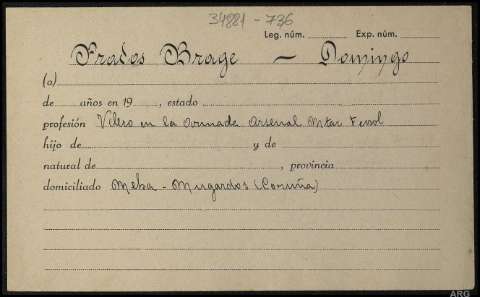 34881-736
Leg. núm. Exp. núm.
Prados Brage - Domingo
(a)
de años en 19 , estado
profesión Velero en la Armada Arsenal Mtar Ferrol
hijo de y de
natural de , provincia
domiciliado Meha - Mugardos (Coruña)
ARG